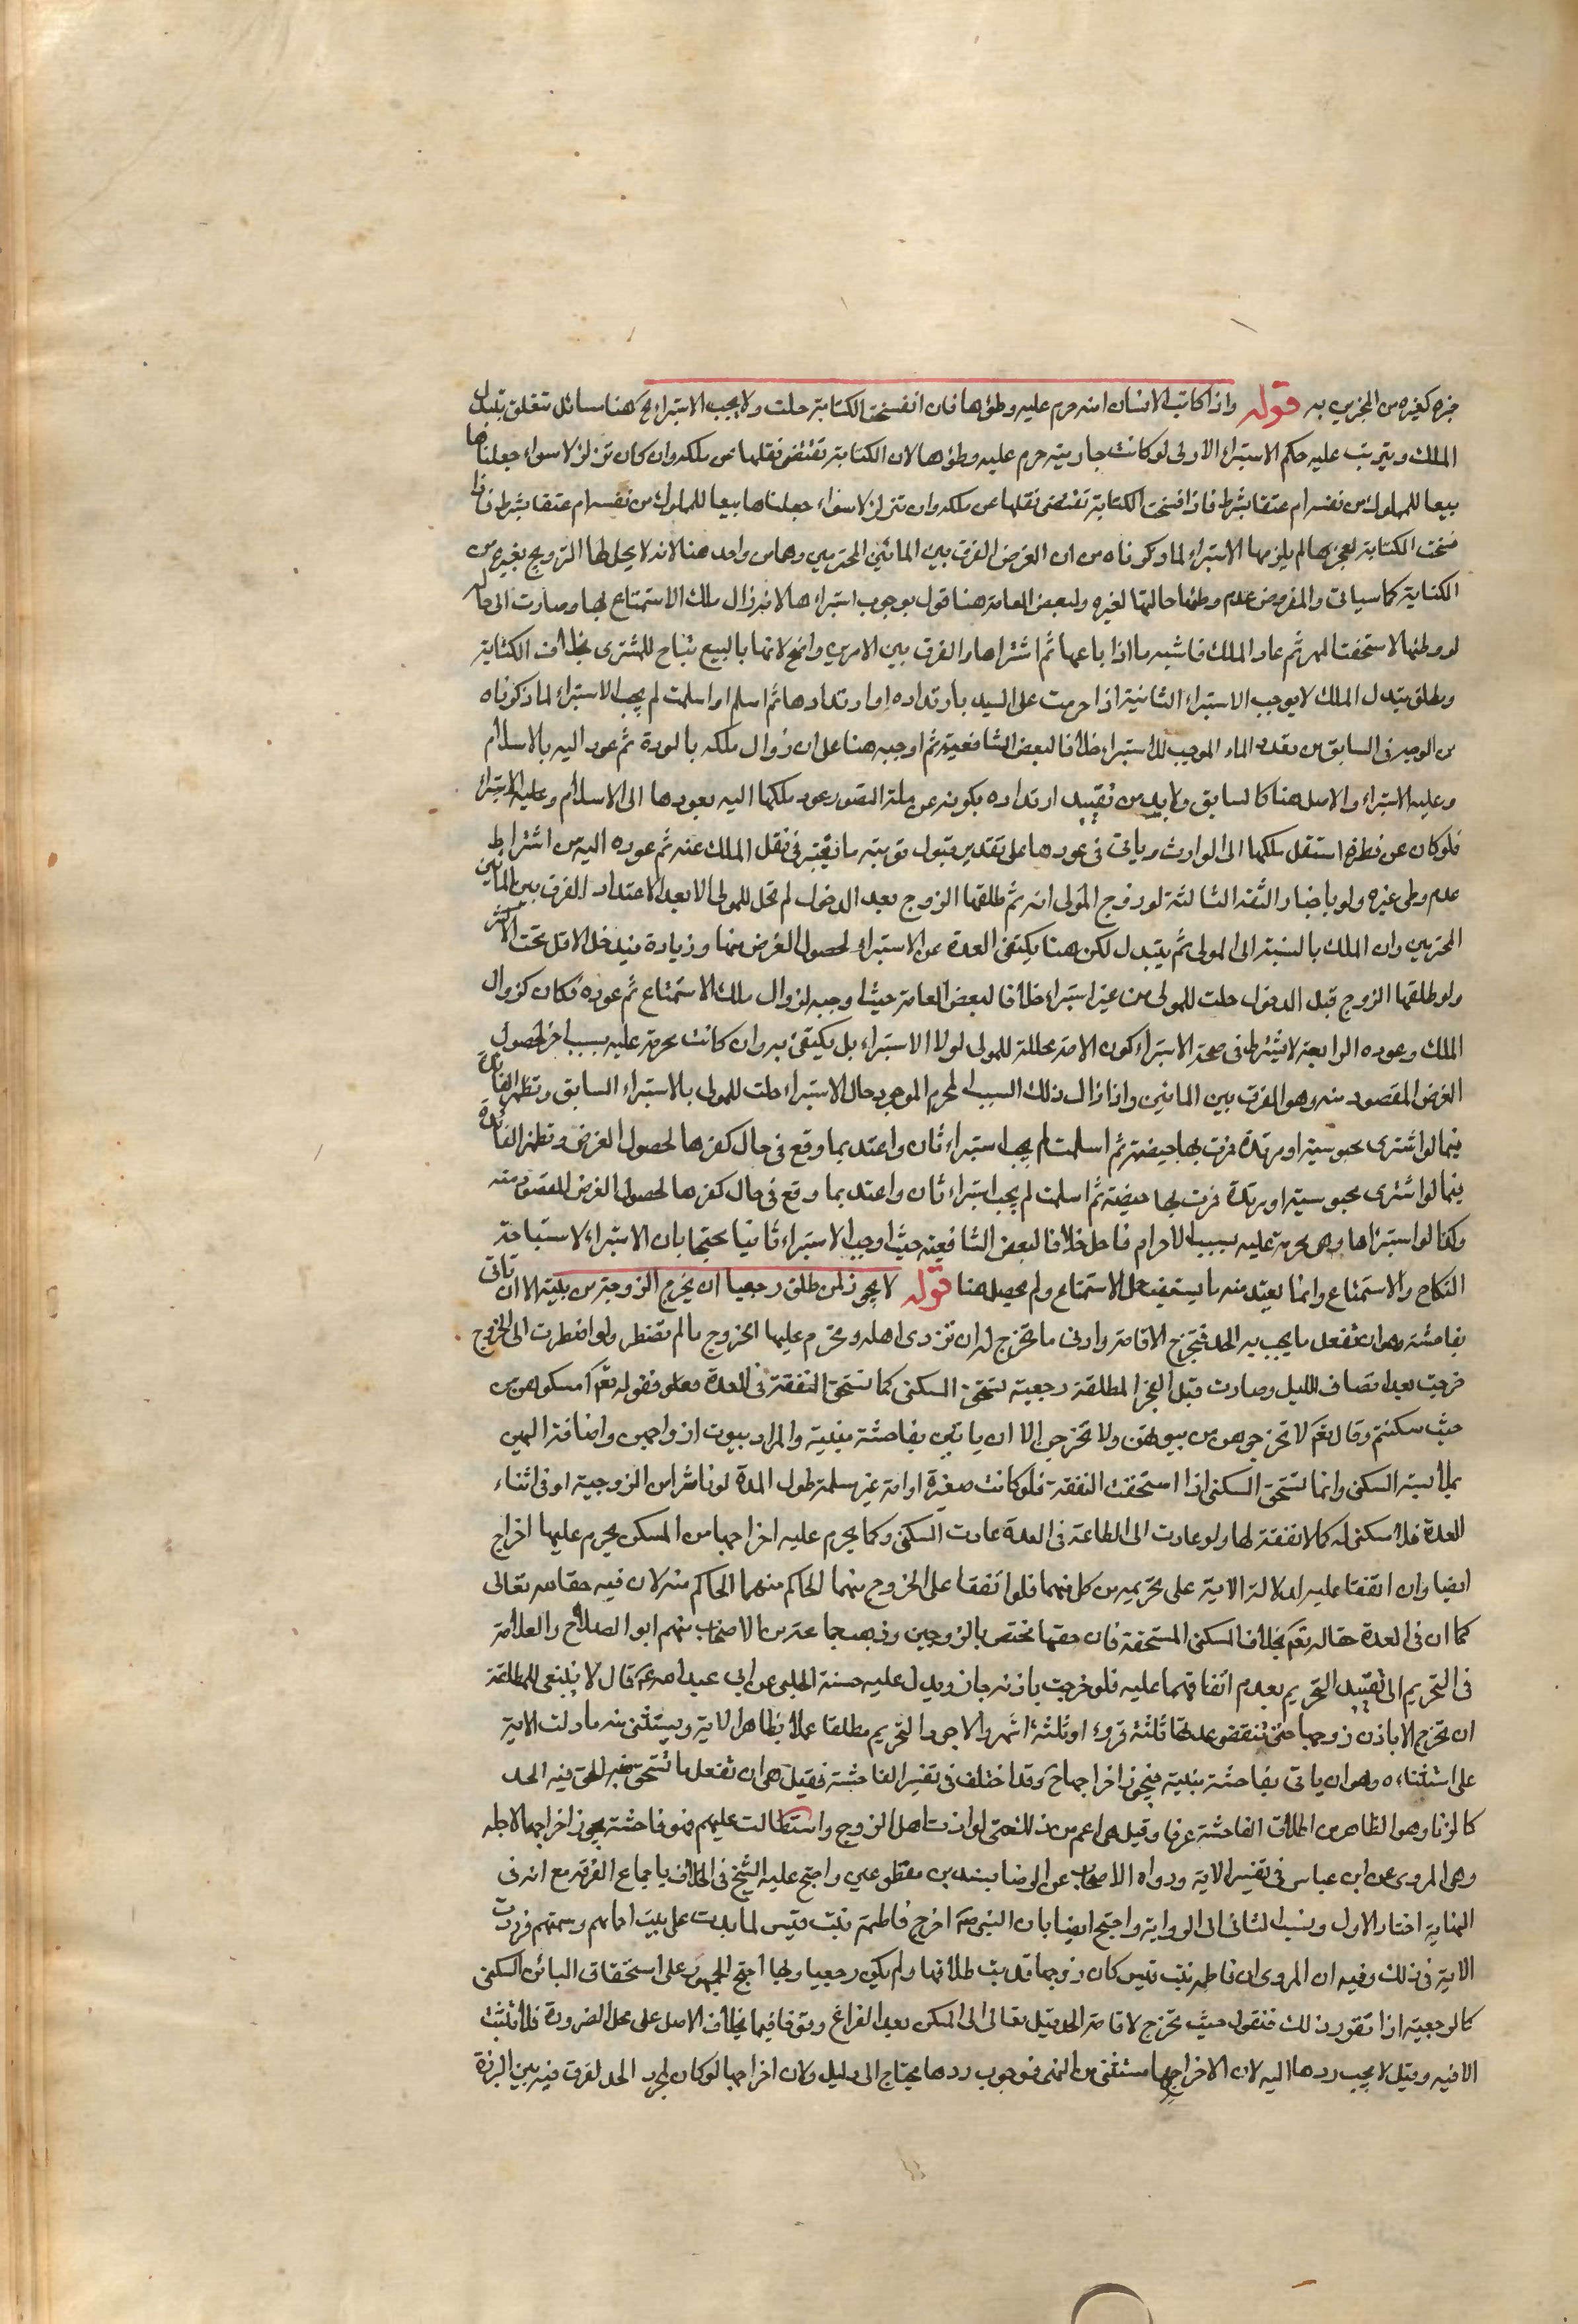 خبره كغيره من المخبرين به قوله واذا كاتب الانسان امته حرم عليه وطؤها فان انفسخت الكتابة حلت ولا يجب الاستبراء الخ هنا مسائل تتعلق بتبدل
الملك ويترتب عليه حكم الاستبراء الاولى لو كانت جاريته حرم عليه وطؤها لان الكتابة تقتضى نقلها عن ملكه وان كان تزلزلا سواء جعلناها
بيعا للمملوك من نفسه ام عتقا بشرط فاذا فسخت الكتابة تقتضى نقلها عن ملكه وان تزلزلا سواء جعلناها بيعا للمملوك من نفسه ام عتقا بشرط فاذا
فسخت الكتابة لعجزها لم يلزمها الاستبراء لما ذكرناه من ان الغرض الفرق بين المائين المحترمين وهما من واحد هنا لانه لا يحل لها التزويج بغيره من
الكتابة كما سياتى والمفروض عدم وطئها حالتها لغيره ولبعض العامة هنا قول بوجوب استبراءها لانه زال ملك الاستمتاع بها وصارت الى حاله
لو وطئها لاستحقت المهر ثم عاد الملك فاشبه ما اذا باعها ثم اشتراها والفرق بين الامرين واضح لانها بالبيع تباح للمشترى بخلاف الكتابة
ومطلق تبدل الملك لا يوجب الاستبراء الثانية اذا حرمت على السيد بارتداده او ارتدادها ثم اسلم او اسلمت لم يجب الاستبراء لما ذكرناه
من الوجه فى السابق من تعدد الماء الموجب للاستبراء خلافا لبعض الشافعية ثم اوجبه هنا على ان زوال ملكه بالردة ثم عود اليه بالاسلام
وعليه الاستبراء والاصل هنا كالسابق ولابد من تقييد ارتداده بكونه عن ملة لتصور عود ملكها اليه بعودها الى الاسلام وعليه الاستبراء
فلو كان عن فطرة استقل ملكها الى الوارث وياتى فى عودها على تقدير قبول توبته ما يعتبر فى نقل الملك عنه ثم عوده اليه من اشتراط
عدم وطى غيره ولو باخبار الثقة الثالثة لو زوج المولى امته ثم طلقها الزوج بعد الدخول لم تحل للمولى الا بعد الاعتداد الفرق بين المائين
المحترمين وان الملك بالنسبة الى المولى ثم يتبدل لكن هنا يكتفى العدة عن الاستبراء لحصول الغرض منها وزيادة فيدخل الاقل تحت الاكثر
ولو طلقها الزوج قبل الدخول حلت للمولى من غير استبراء خلافا لبعض العامة حيث اوجبه لزوال ملك الاستمتاع ثم عوده فكان كزوال
الملك وعوده الرابعة لا يشترط فى صحة الاستبراء كون الامة محللة للمولى لولا الاستبراء بل يكتفى به وان كانت محرمة عليه بسبب اخر لحصول
الغرض المقصود منه وهو الفرق بين المائين واذا زال ذلك السبب المحرم الموجود حال الاستبراء حلت للمولى بالاستبراء السابق وتظهر الفائدة
فيما لو اشترى مجوسية او مرتدة فمرت بها حيضة ثم اسلمت لم يجب استبراء ثان واعتد بما وقع فى حال كفرها لحصول الغرض وتظهر الفائدة
فيما لو اشترى مجوسية او مرتدة فمرت بها حيضة ثم اسلمت لم يجب استبراء ثان واعتد بما وقع فى حال كفرها لحصول الغرض المقصود منه
وكذا لو استبراها وهى محرمة عليه بسبب الاحرام فاحل خلافا لبعض الشافعية حيث اوجب الاستبراء ثانيا محتجا بان الاستبراء لاستباحة
النكاح والاستمتاع وانما يعتد منه ما يستعقب حل الاستمتاع ولم يحصل هنا قوله لا يجوز لمن طلق رجعيا ان يخرج الزوجة من بيته الا ان تاتى
بفاحشة وهو ان تفعل ما يجب به الحد فتخرج لاقامته وادنى ما تخرج له ان تؤذى اهله ويحرم عليها الخروج ما لم تضطر ولو اضطرت الى الخروج
خرجت بعد انتصاف الليل وصارت قبل الفجر المطلقة رجعية تستحق السكنى كما تستحق النفقة فى العدة فقوله تعم اسكنوهن من
حيث سكنتم وقال تعم لا تخرجوهن من بيوتهن ولا يخرجن الا ان ياتين بفاحشة مبينة والمراد ببيوت ازواجهن واضافته اليهن
بملابسة السكنى وانما تستحق السكنى اذا استحقت النفقة فلو كانت صغيرة او امة غير مسلمة طول المدة او ناشزا من الزوجية او فى اثناء
العدة فلا سكنى له كما لا نفقة لها ولو عادت الى الطاعة فى العدة عادت السكنى وكما يحرم عليه اخراجها من المسكن يحرم عليها اخراج
ايضا وان اتفقا عليه لدلالة الاية على تحريمه من كل منهما فلو اتفقا على الخروج منهما الحاكم منهما الحاكم منه لان فيه حقا لله تعالى
كما ان فى العدة حقا له تعم بخلاف السكنى المستحقة فان حقها مختص بالزوجين وذهب جماعة من الاصحاب منهم ابو الصلاح والعلامة
فى التحريم الى تقييد التحريم بعدم اتفاقهما عليه فلو خرجت باذنه جاز ويدل عليه حسنة الحلبى عن ابى عبد الله ع قال لا ينبغى للمطلقة
ان تخرج الا باذن زوجها حتى تنقضى عدتها ثلثة قروء او ثلثة اشهر والاجود التحريم مطلقا عملا بظاهر الاية ويستثنى منه ما دلت الاية
على استثناءه وهو ان ياتى بفاحشة مبينة فيجوز اخراجها ح وقد اختلف فى تفسير الفاحشة فقيل هى ان تفعل ما تستحق به الحد
كالزنا وهو الظاهر من اطلاق الفاحشة عرفا وقيل هى اعم من ذلك حتى لو اذت اهل الزوج واستطالت عليهم فهو فاحشة يجوز اخراجها لاجله
وهى المروى عن ابن عباس فى تفسير الاية ورواه الاصحاب عن الرضا بسندين مقطوعين واحتج عليه الشيخ فى الخلاف باجماع الفرقة مع انه فى
النهاية اختار الاول ونسب الثانى الى الرواية واحتج ايضا بان النبى ص اخرج فاطمة بنت قيس لما بذت على بيت احمائهم وشتمهم فوردت
الاية فى ذلك وفيه ان المروى ان فاطمة بنت قيس كان زوجها قد بت طلاقها ولم يكن رجعيا ولهذا احتج الجمهور على استحقاق البائن السكنى
كالرجعية اذا تقرر ذلك فنقول حيث تخرج لاقامة الحد قيل تعاد الى المسكن بعد الفراغ وقوفا فيما يخالف الاصل على محل الضرورة فلا تثبت
الا فيه وقيل لا يجب ردها اليه لان الاخراج مستثنى من النهى فوجوب ردها يحتاج الى دليل ولان اخراجها لو كان لمجرد الحد لفرق فيه بين البرزة